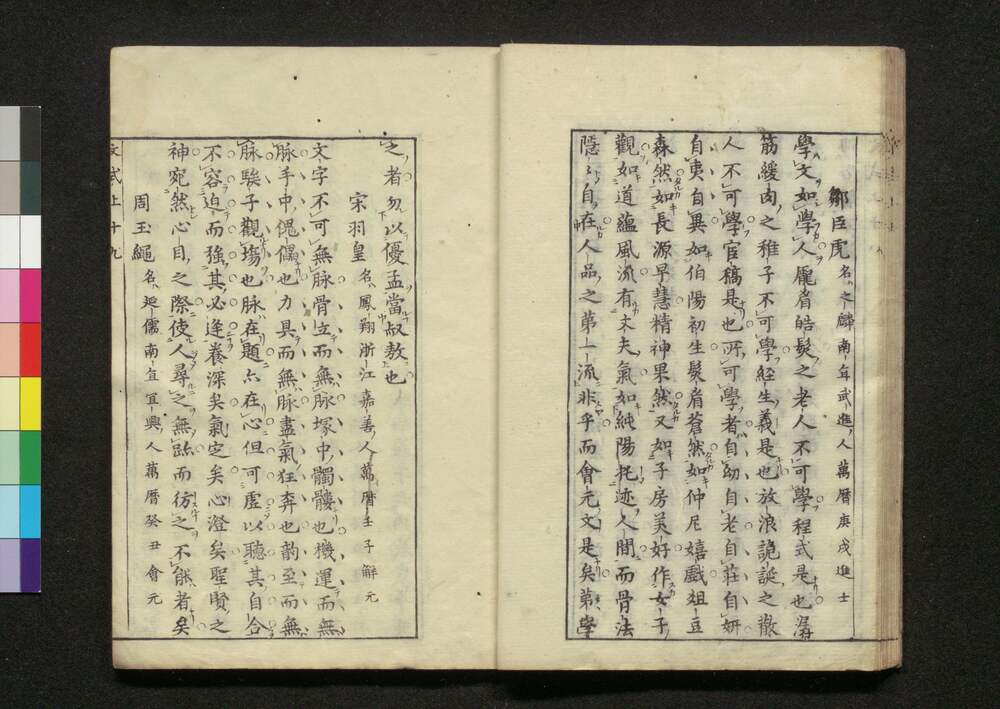 鄒臣虎 名之麟南年武進人萬曆庚戌進士
學文如學人龐眉皓髮之老人不可學程式是也潺
筋緩肉之稚子不可學經生義是也放浪詭誕之散
人不可學官稿是也所可學者自幼自老自莊自妍
自夷自異如伯陽初生髮眉蒼然如仲尼嬉戲俎豆
森然如長源早慧精神果然又如子房美好作女子
觀如道蘊風流有丈夫氣如純陽托迹人間而骨法
隱〻自在人品之第一流非乎而會元文是矣第學
之者勿以優孟當叔敖也
宋羽皇 名鳳翔浙江嘉善人萬曆壬子解元
文字不可無脉骨立而無脉塚中髑髏也機運而無
脉手中傀儡也力具而無脉盡氣狂奔也韵至而無
脉駿子觀場也脉在題亦在心但可虛以聽其自合
不容迫而強其必逢養深矣氣定矣心澄矣聖賢之
神宛然心目之際使人尋之無跡而彷之不能者矣
周玉繩 名延儒南宜宜興人萬曆癸丑會元
文式上 十九